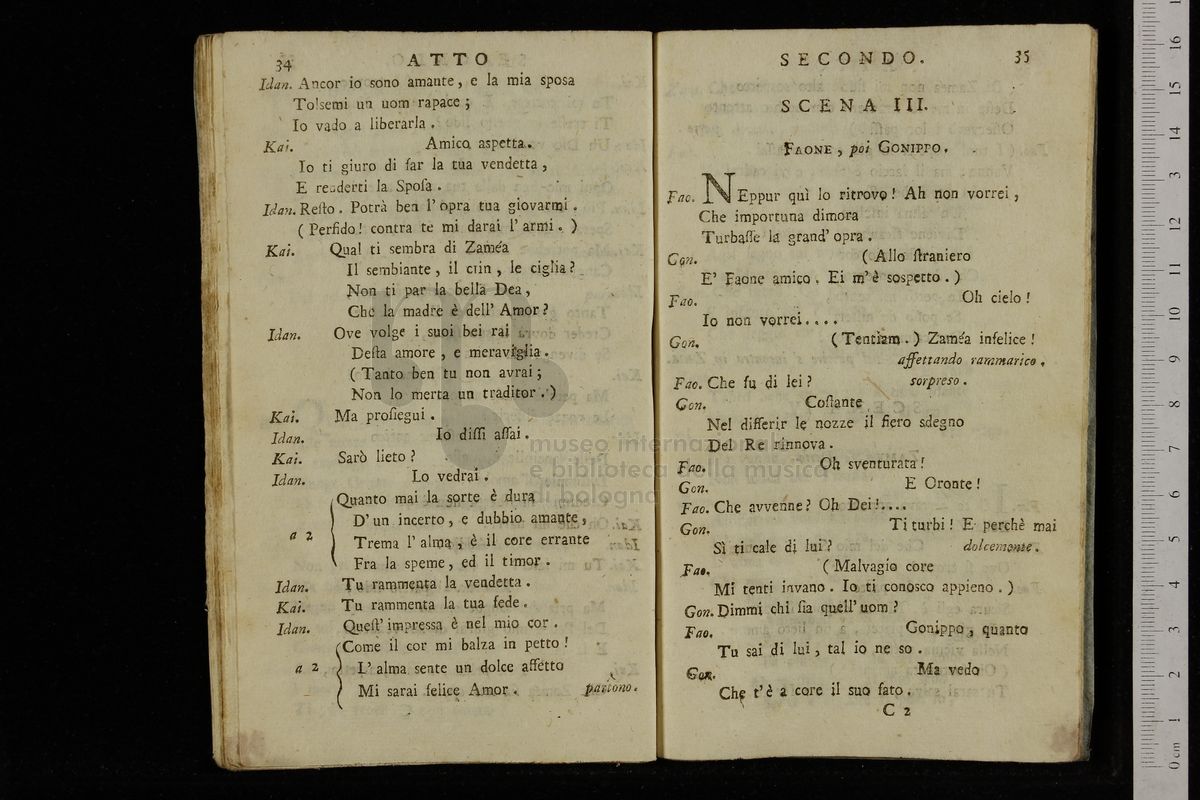 34 ATTO
Idan. Ancor io sono amante, e la mia sposa
Tolsemi un uom rapace;
Io vado a liberarla.
Kai. Amico aspetta.
Io ti giuro di far la tua vendetta,
E renderti la Sposa.
Idan. Resto. Potrà ben l'opra tua giovarmi.
(Perfido! contra te mi darai l'armi.)
Kai. Qual ti sembra di Zaméa
Il sembiante, il crin, le ciglia?
Non ti par la bella Dea,
Che la madre è dell'Amor?
Idan. Ove volge i suoi bei rai
Desta amore, e meraviglia.
(Tanto ben tu non avrai;
Non lo merta un traditor.)
Kai. Ma prosiegui.
Idan. Io dissi assai.
Kai. Sarò lieto?
Idan. Lo vedrai.
Quanto mai la sorte è dura
D'un incerto, e dubbio amante,
a 2 Trema l'alma, è il core errante
Fra la speme, ed il timor.
Idan. Tu rammenta la vendetta.
Kai. Tu rammenta la tua fede.
Idan. Quest'impressa è nel mio cor.
Come il cor mi balza in petto!
a 2 L'alma sente un dolce affetto
Mi sarai felice Amor. partono.
SECONDO. 35
SCENA III.
FAONE, poi GONIPPO.
Fao. NEppur quì lo ritrovo! Ah non vorrei,
Che importuna dimora
Turbasse la grand'opra.
Gon. (Allo straniero
E' Faone amico. Ei m'è sospetto.)
Fao. Oh cielo!
Io non vorrei....
Gon. (Tentiam.) Zaméa infelice!
affettando rammarico.
Fao. Che fu di lei? sorpreso.
Gon. Costante
Nel differir le nozze il fiero sdegno
Del Re rinnova.
Fao. Oh sventurata!
Gon. E Oronte!
Fao. Che avvenne? Oh Dei!....
Gon. Ti turbi! E perchè mai
Sì ti cale di lui? dolcemente.
Fao. (Malvagio core
Mi tenti invano. Io ti conosco appieno.)
Gon. Dimmi chi sia quell'uom?
Fao. Gonippo, quanto
Tu sai di lui, tal io ne so.
Gon. Ma vedo
Che t'è a core il suo fato.
C 2
museo internazionale
e biblioteca della musica
di bologna